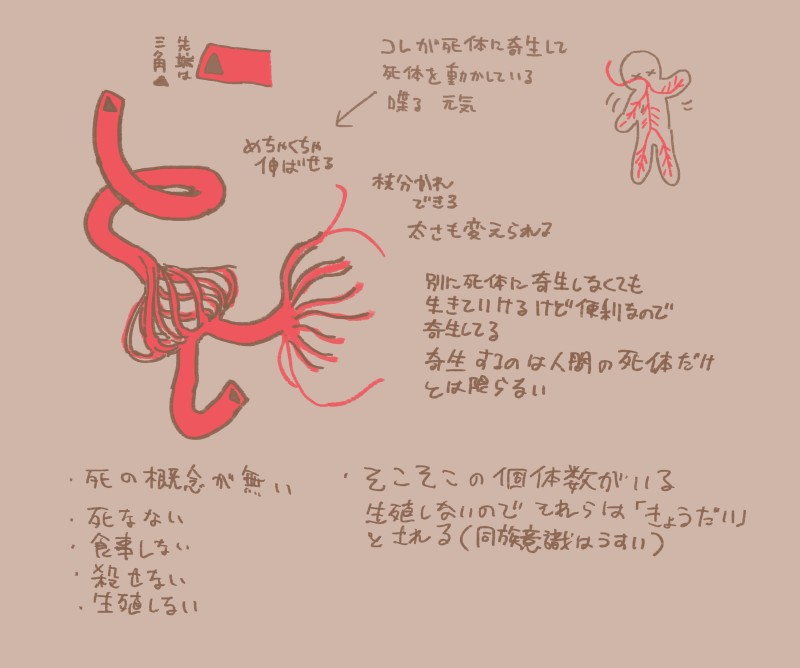 先端は
三角▲
コレが死体に寄生して
死体を動かしている
喋る 元気
めちゃくちゃ
伸ばせる
枝分かれ
できる
太さも変えられる
別に死体に寄生しなくても
生きていけるけど便利なので
寄生してる
寄生するのは人間の死体だけ
とは限らない
・死の概念が無い
・死なない
・食事しない
・殺せない
・生殖しない
・そこそこの個体数がいる
生殖しないのでそれらは「きょうだい」
とされる(同族意識はうすい)